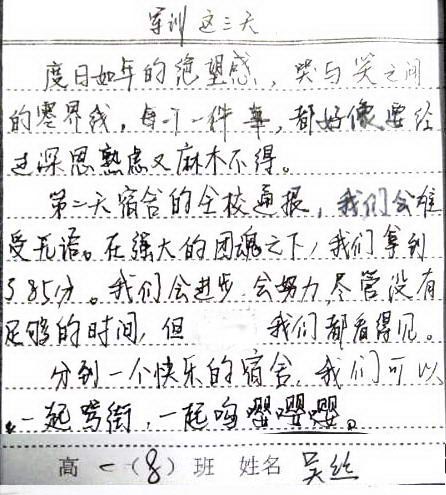 军训这三天
度日如年的绝望感，哭与笑之间
的零界线，每干一件事，都好像要经
过深思熟虑又麻木不得。
第二天宿舍的全校通报，我们会难
受无语。在强大的团魂之下，我们拿到
385分。我们会进步，会努力，尽管没有
足够的时间，但 我们都看得见。
分到一个快乐的宿舍，我们可以
一起骂街，一起呜嘤嘤嘤。
高一（8）班 姓名 吴丝